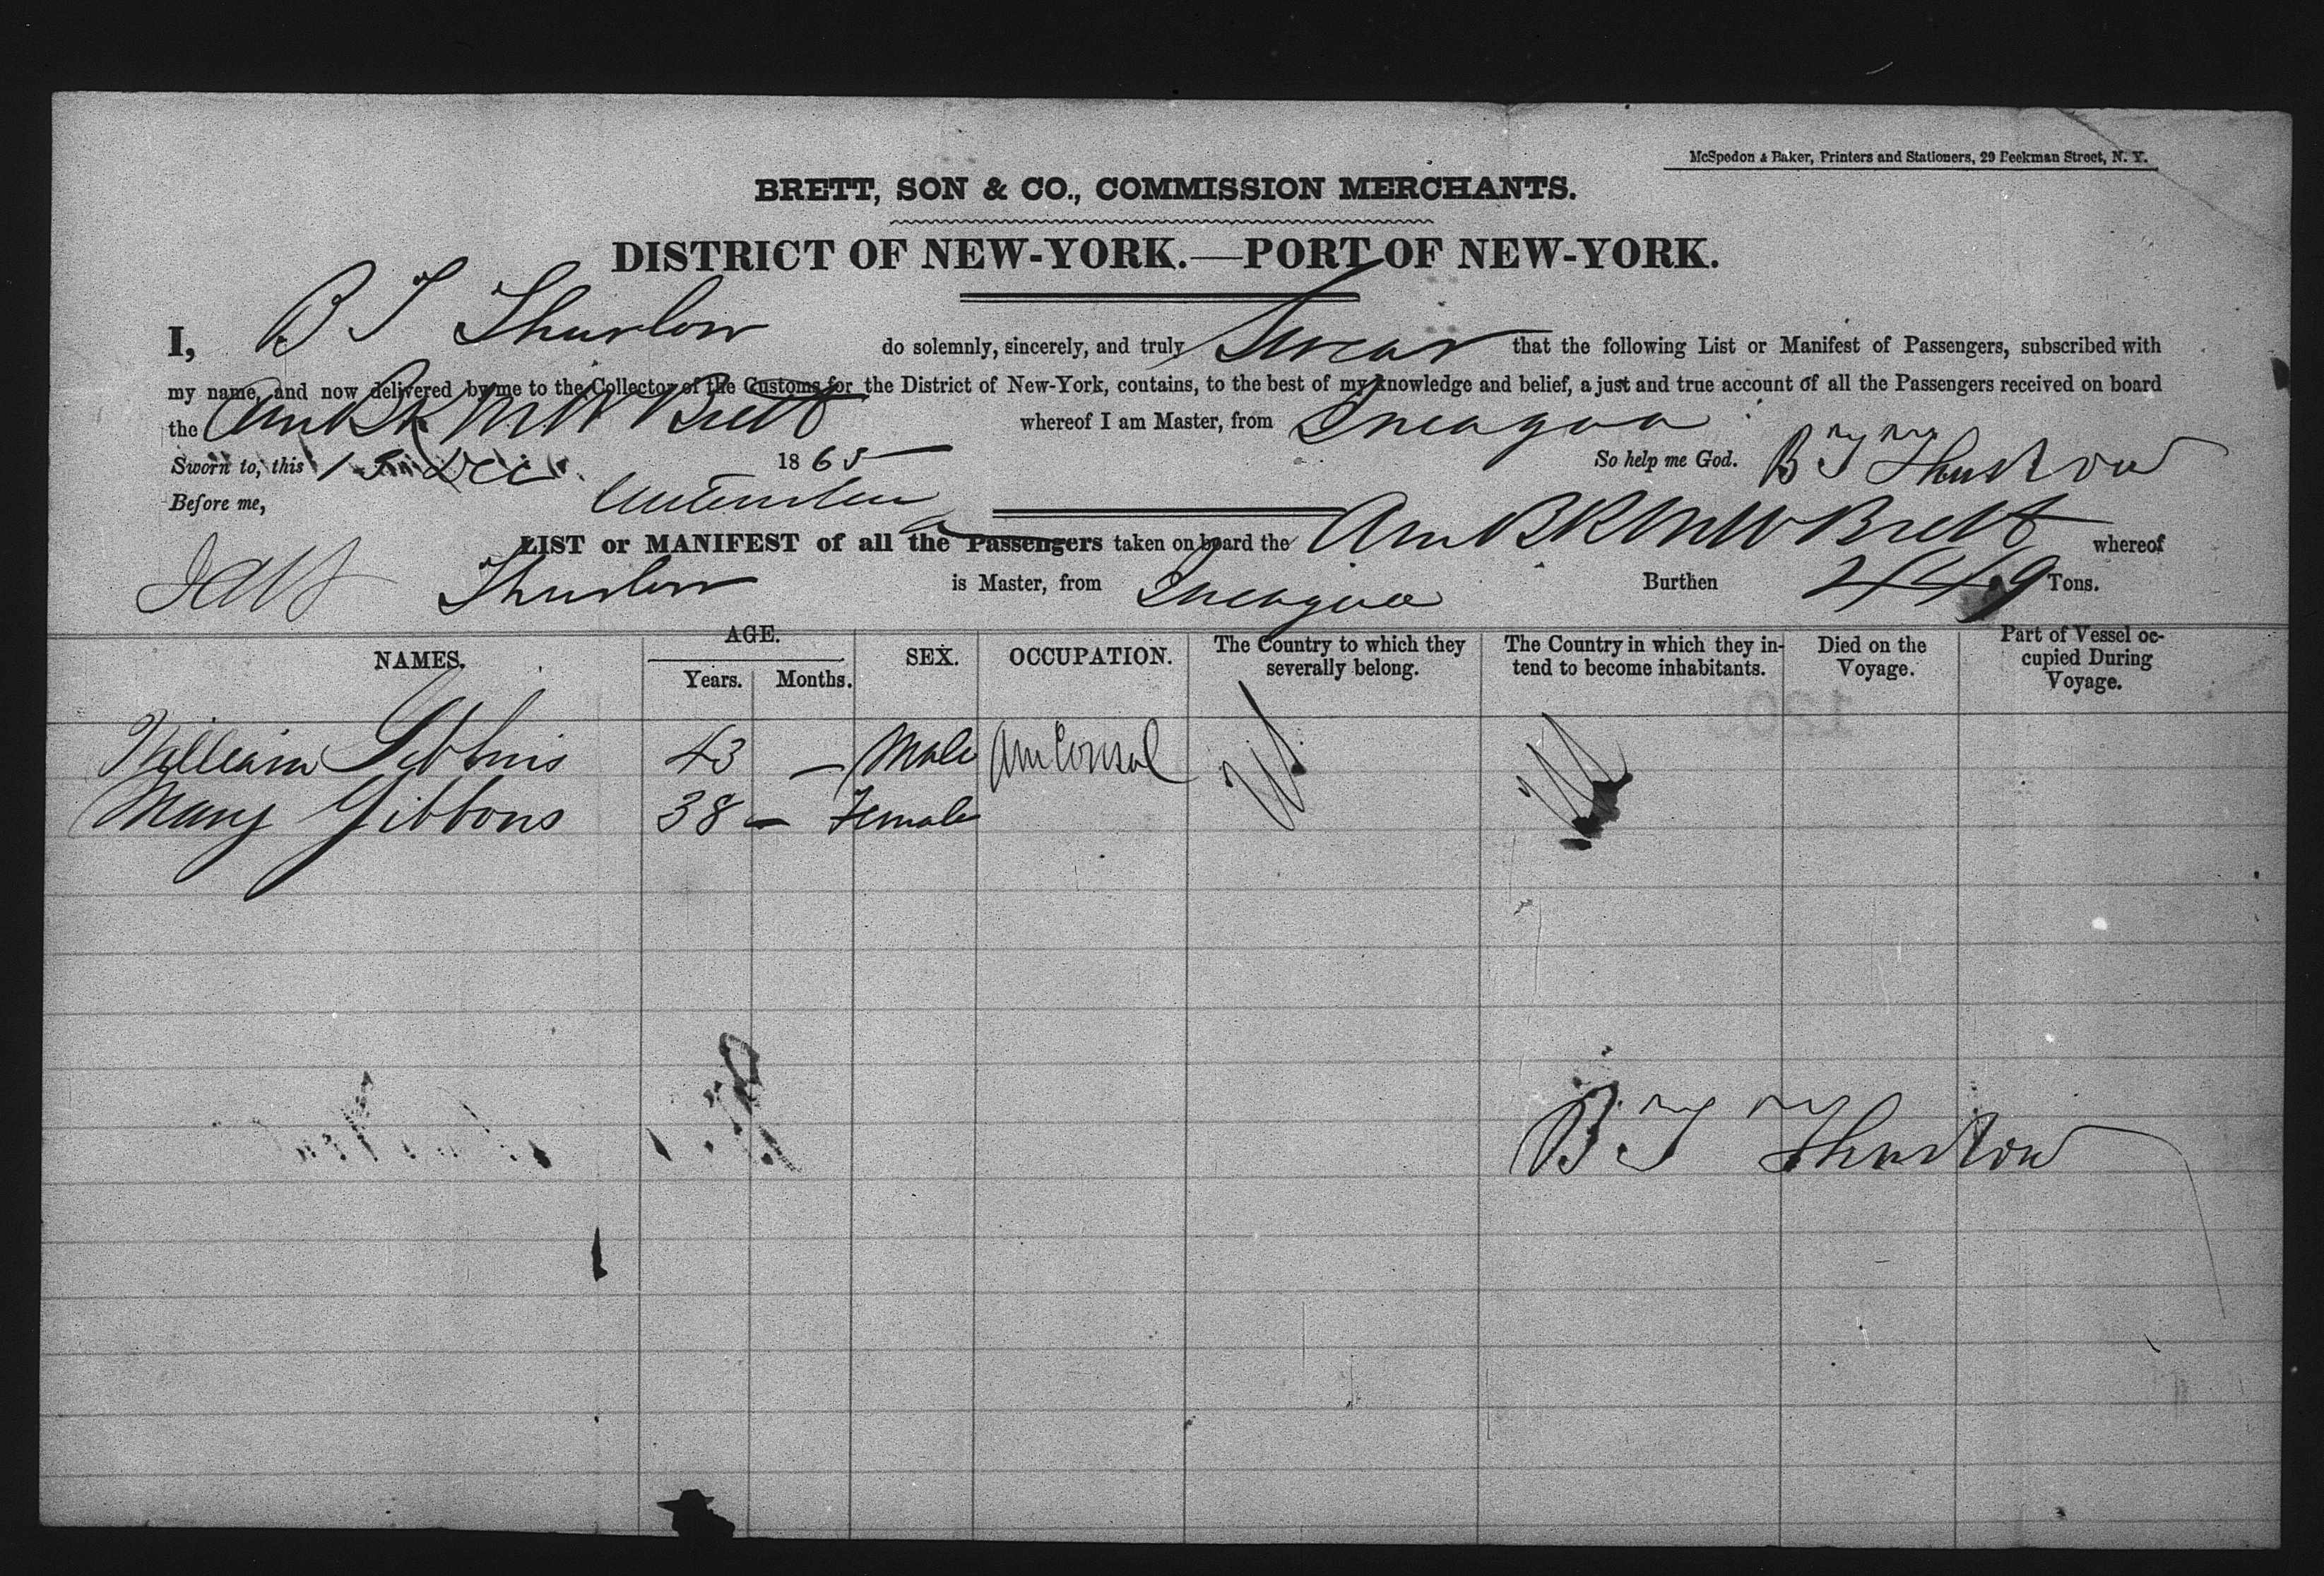 McSpedon & Baker, Printers and Stationers, 29 Beekman Street, N. Y.
BRETT, SON & CO., COMMISSION MERCHANTS.
DISTRICT OF NEW-YORK.—PORT OF NEW-YORK.
I, B T Thurlow do solemnly, sincerely, and truly Swear that the following List or Manifest of Passengers, subscribed with
my name, and now delivered by me to the Collector of the Customs for the District of New-York, contains, to the best of my knowledge and belief, a just and true account of all the Passengers received on board
the Am Bk M W Brett whereof I am Master, from Ineagua
Sworn to, this 15 Dec 1865 So help me God. B T Thurlow
Before me,
LIST or MANIFEST of all the Passengers taken on board the Am BK M W Brett whereof
Thurlow is Master, from Ineagua Burthen 449 Tons.
NAMES. AGE. Years. Months. SEX. OCCUPATION. The Country to which they severally belong. The Country in which they intend to become inhabitants. Died on the Voyage. Part of Vessel occupied During Voyage.
William Gibbons 43 — Male Am Consul US US
Mary Gibbons 38 — Female
B T Thurlow